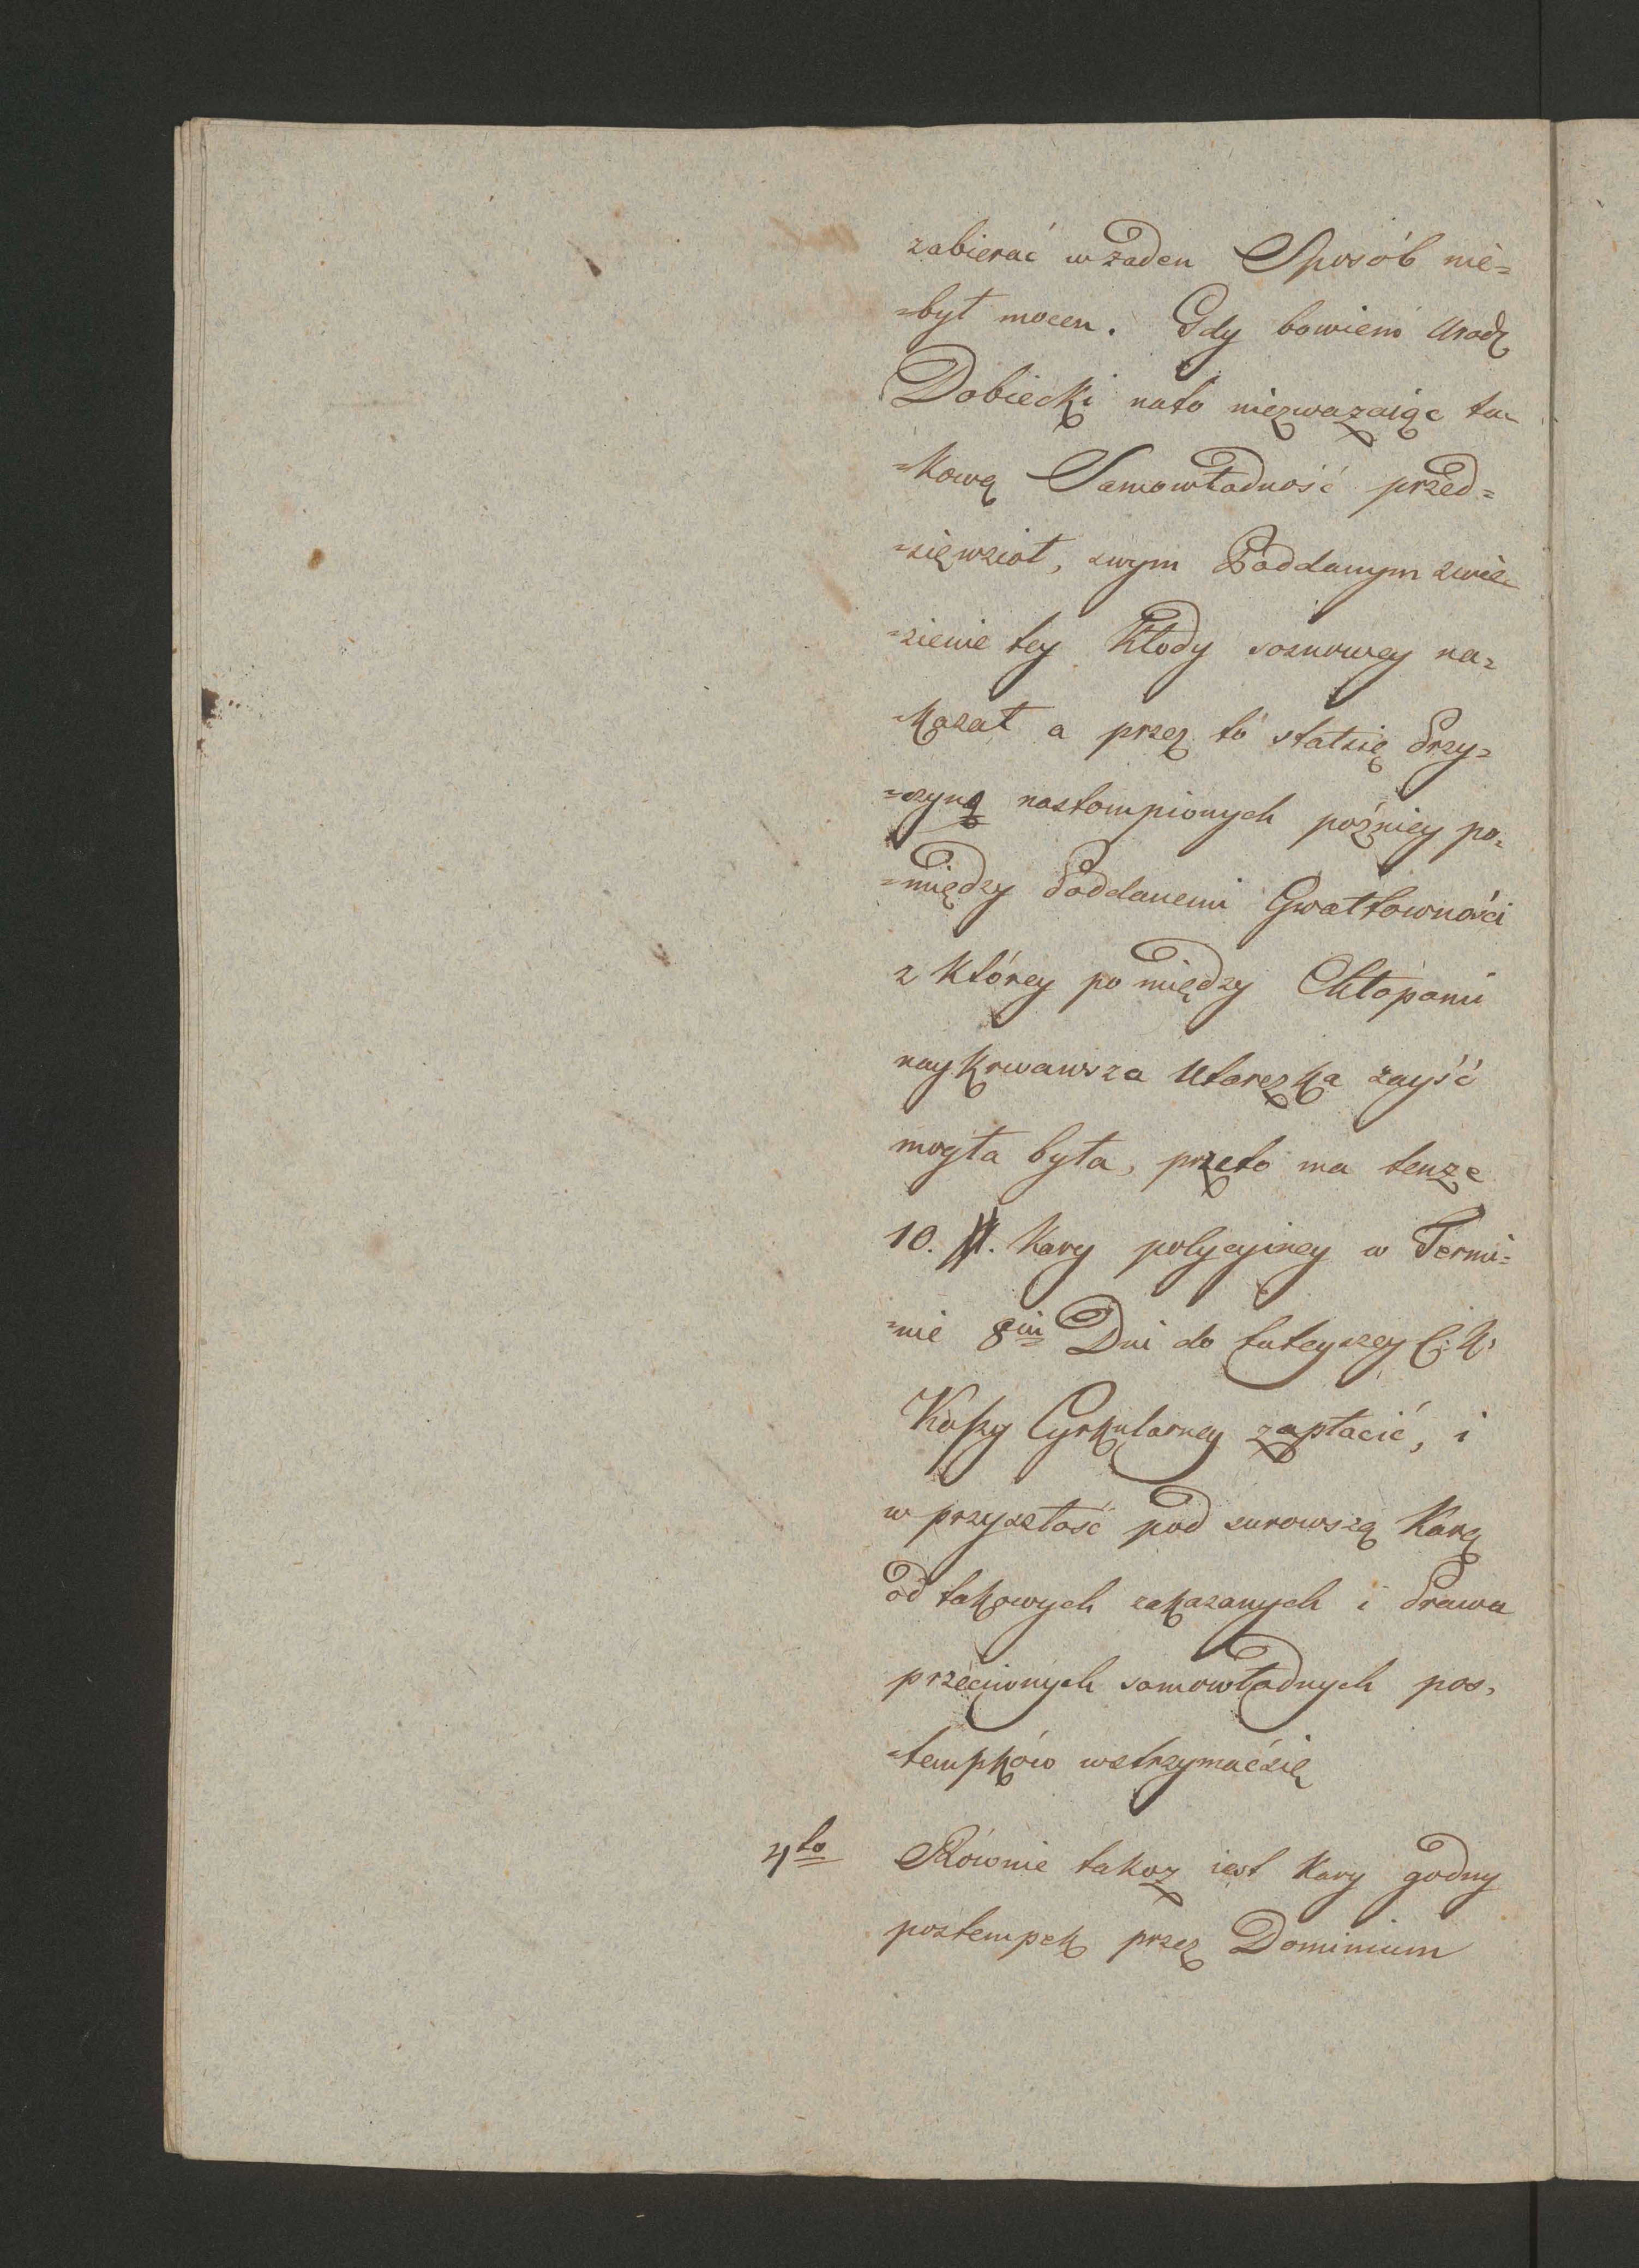 zabierać w żaden Sposób nie=
=był mocen. Gdy bowiem Urodz
Dobiecki nato niezwazaiąc ta=
=kową Samowładność przed=
=sięwzioł, swym Poddanym zwie=
=zienie tey Kłody sosnowey na=
=kazał a przez to stałsię Przy=
=czyną nastompionych późniey po=
=między Poddanemi Gwałtowności
z którey po między Chłopami
naykrwawsza Utarczka zayść
mogła była, przeto ma tenze
10. fl. Kary policyiney w Termi=
=nie 8iu Dni do tuteyszey C: K:
Kassy Cyrkularney zapłacić, i
w przyszłość pod surowszą Karą
od takowych zakazanych i Prawu
przeciwnych samowładnych pos=
=tempków wstrzymaćsię
4to Równie takoz iest Kary godny
postempek przez Dominium